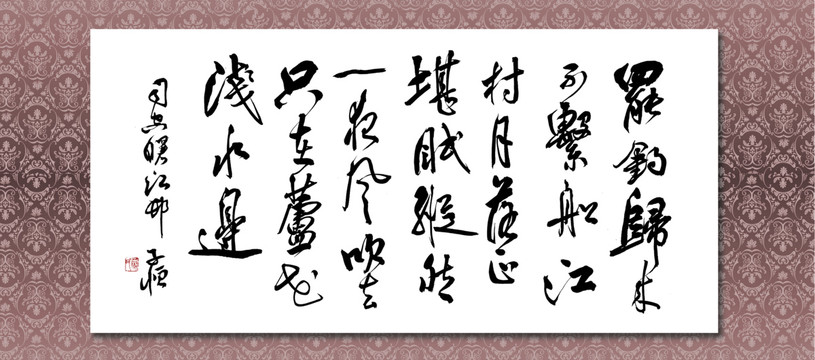 罷釣歸来
不繫船江
村月落正
堪眠縱然
一夜風吹去
只在蘆花
淺水邊
司空曙江邨